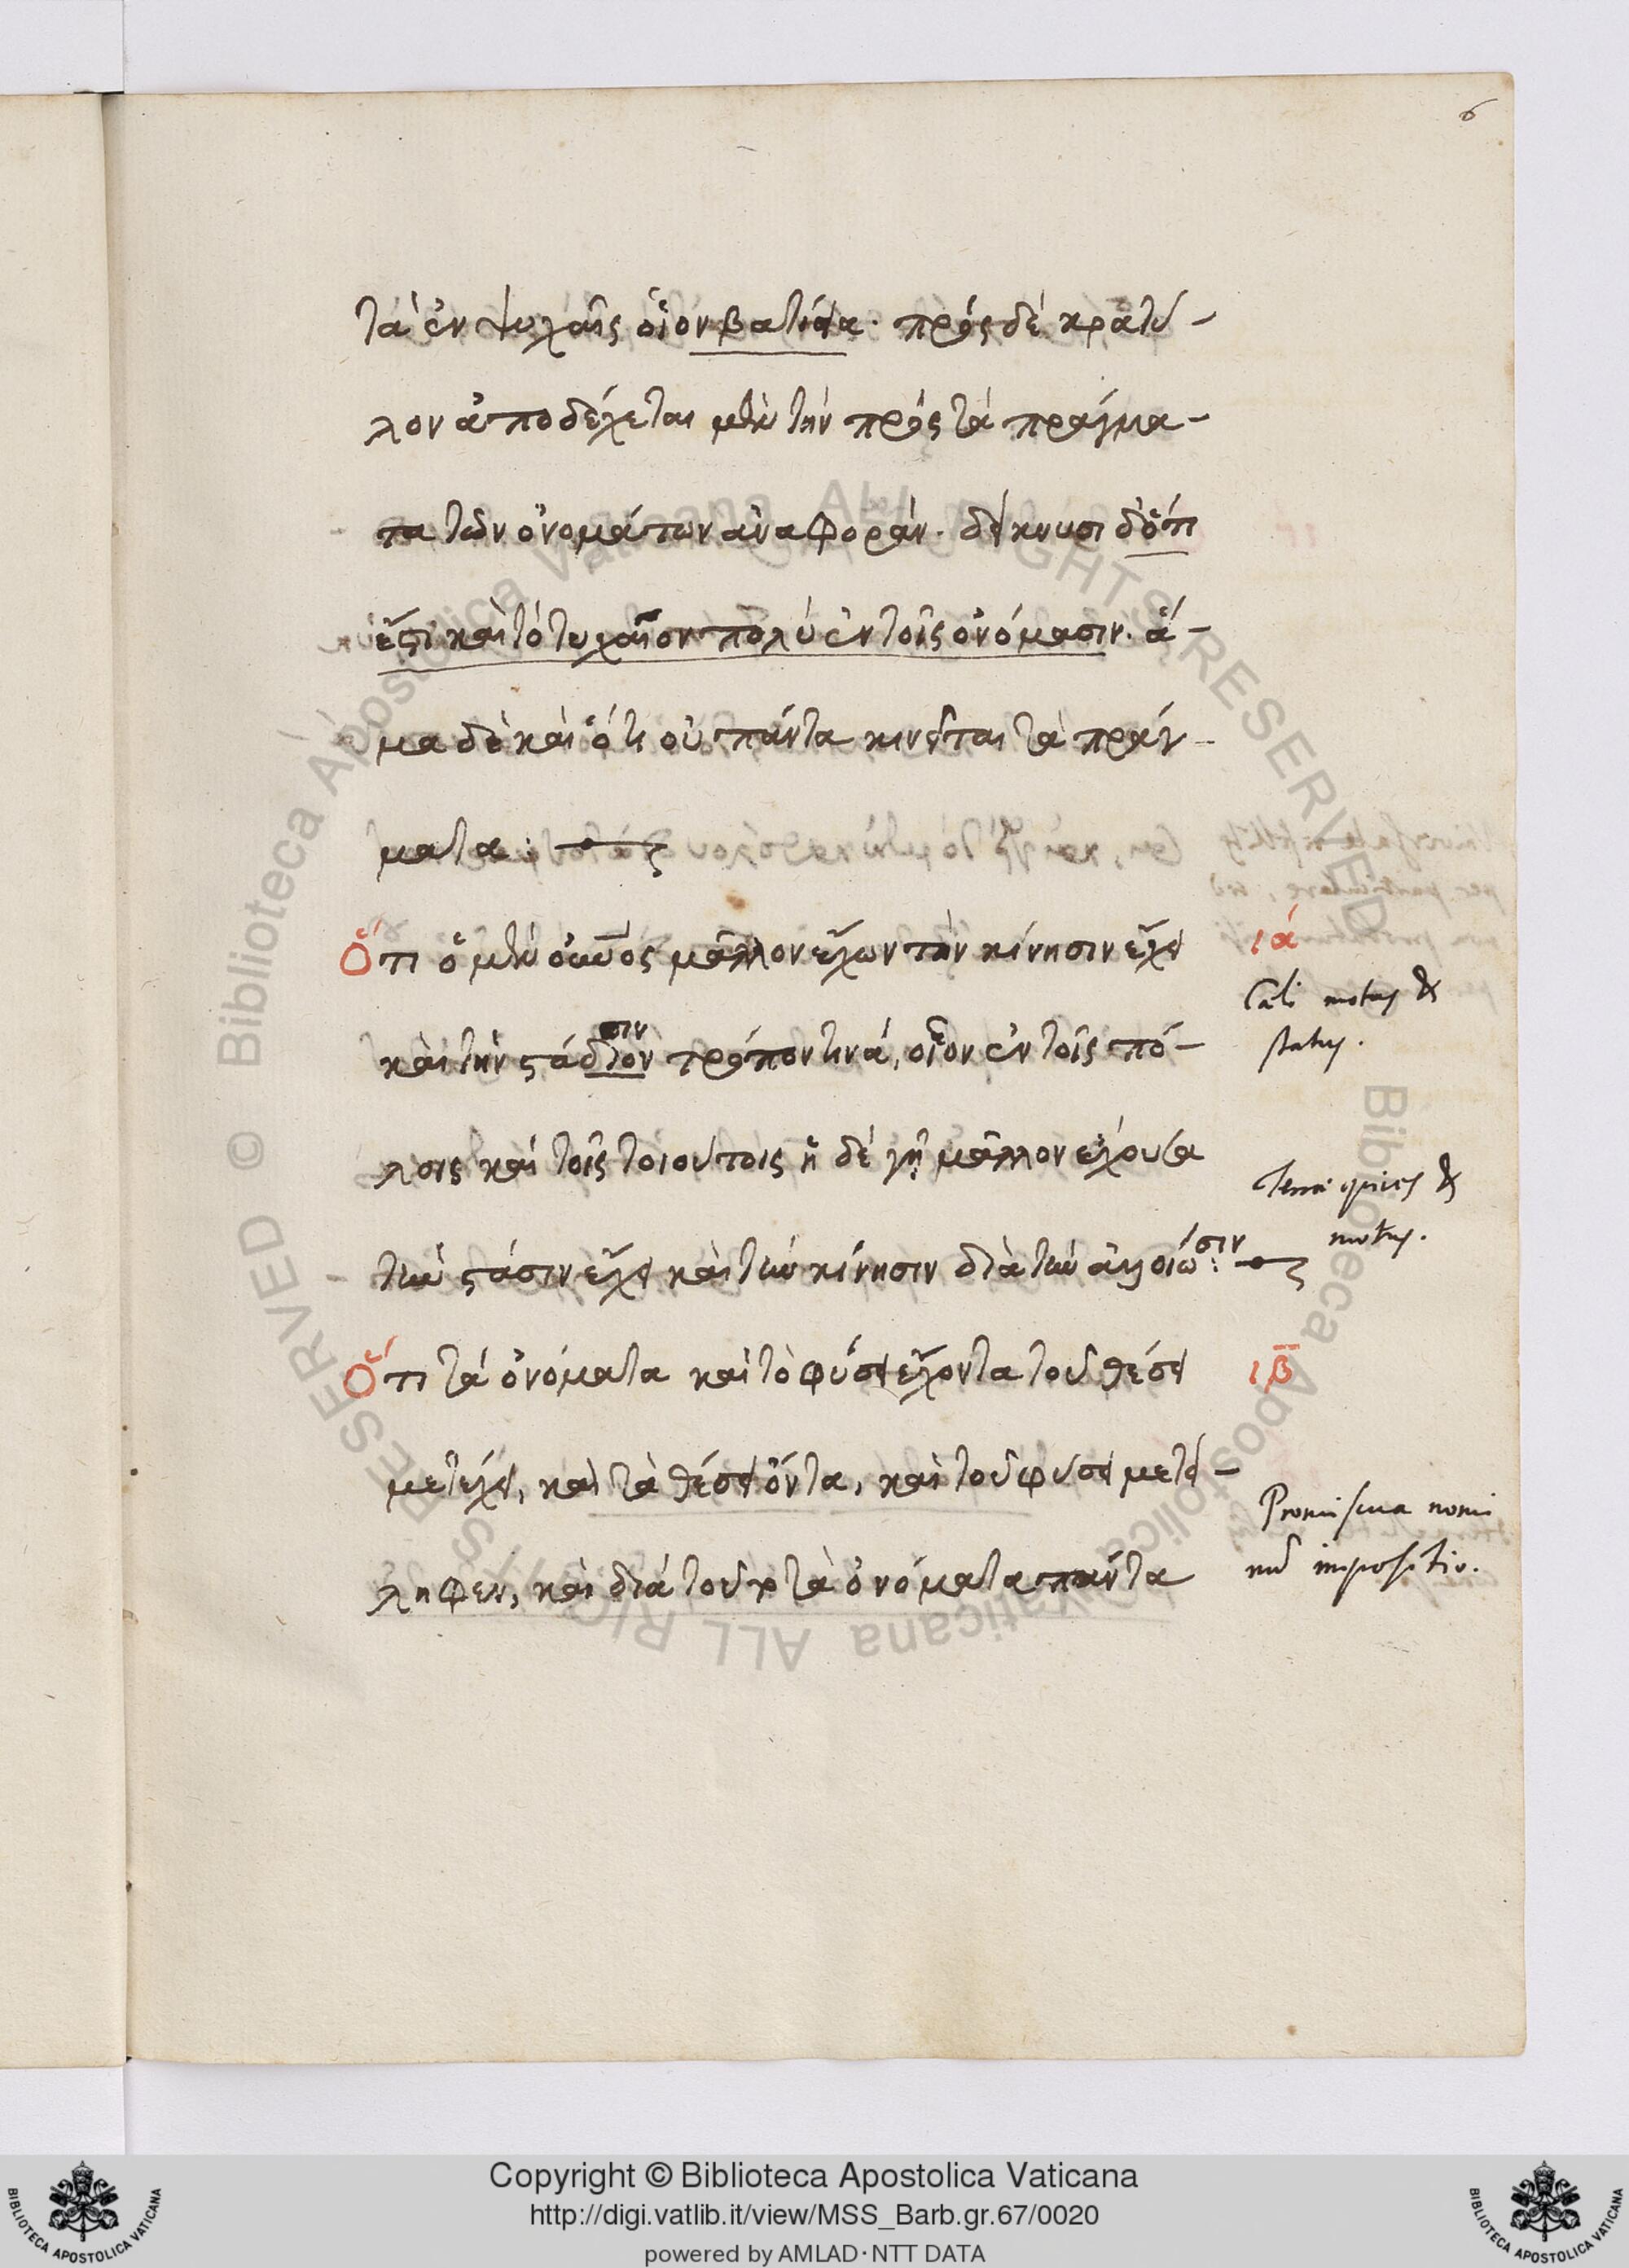 6
τὰ ἐν ψυχαῖς οἷον βατιεῖα· πρὸς δὲ κρατύ-
λον ἀποδέχεται μὲν τὴν πρὸς τὰ πράγμα-
τα τῶν ὀνομάτων ἀναφοράν· δείκνυσι δ' ὅτι
ἔστι καὶ τὸ τυχαῖον πολὺ ἐν τοῖς ὀνόμασιν· ἅ-
μα δὲ καὶ ὅτι οὐ πάντα κινεῖται τὰ πράγ-
ματα :
Ὅτι ὁ μὲν οὐνος μᾶλλον ἔχων τὴν κίνησιν ἔχει
ιά
Cæli motus &
καὶ τὴν στάσιν τὸν τρόπον τινά, οἷον ἐν τοῖς πό-
status.
λοις καὶ τοῖς τοιούτοις ἡ δέ γῆ μᾶλλον ἔχουσα
Terræ quies &
motus.
τὴν στάσιν ἔχει καὶ τὴν κίνησιν διὰ τὴν ἀλλοίωσιν :
Ὅτι τὰ ὀνόματα καὶ τὸ φύσει ἔχοντα τοῦ θέσει
ιβ
μετέχει, καὶ τὰ θέσει ὄντα, καὶ τοῦ φύσει μετεί-
Promiscua nomi
ληφεν, καὶ διὰ τοῦτο τὰ ὀνόματα πάντα
nũ impositio.
Copyright © Biblioteca Apostolica Vaticana
http://digi.vatlib.it/view/MSS_Barb.gr.67/0020
powered by AMLAD·NTT DATA